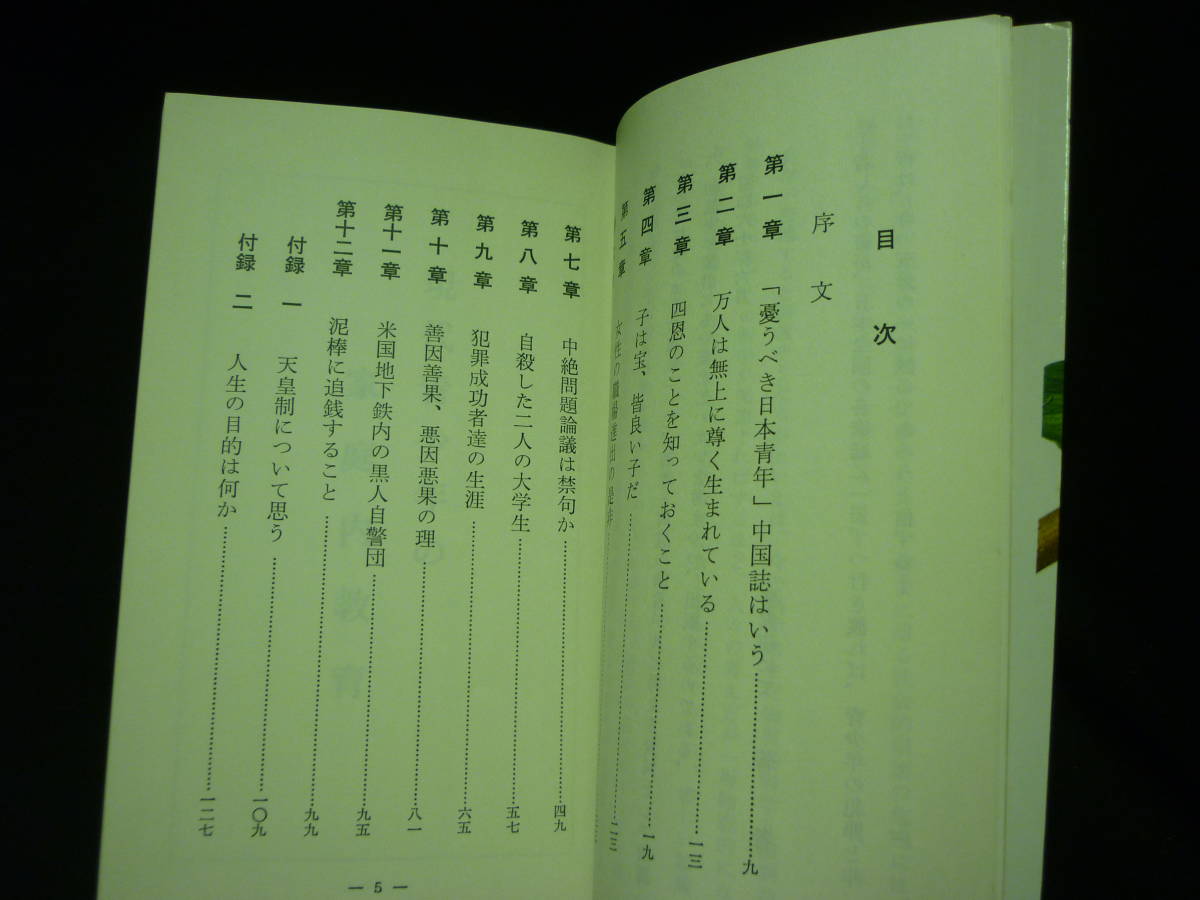 目次
序文
第一章 「憂うべき日本青年」中国誌はいう……九
第二章 万人は無上に尊く生まれている……一三
第三章 四恩のことを知っておくこと……一九
第四章 子は宝、皆良い子だ……二三
第五章 女性の職場進出の是非
第七章 中絶問題論議は禁句か……四九
第八章 自殺した二人の大学生……五七
第九章 犯罪成功者達の生涯……六五
第十章 善因善果、悪因悪果の理……八一
第十一章 米国地下鉄内の黒人自警団……九五
第十二章 泥棒に追銭すること……九九
付録一 天皇制について思う……一〇九
付録二 人生の目的は何か……一二七
— 5 —